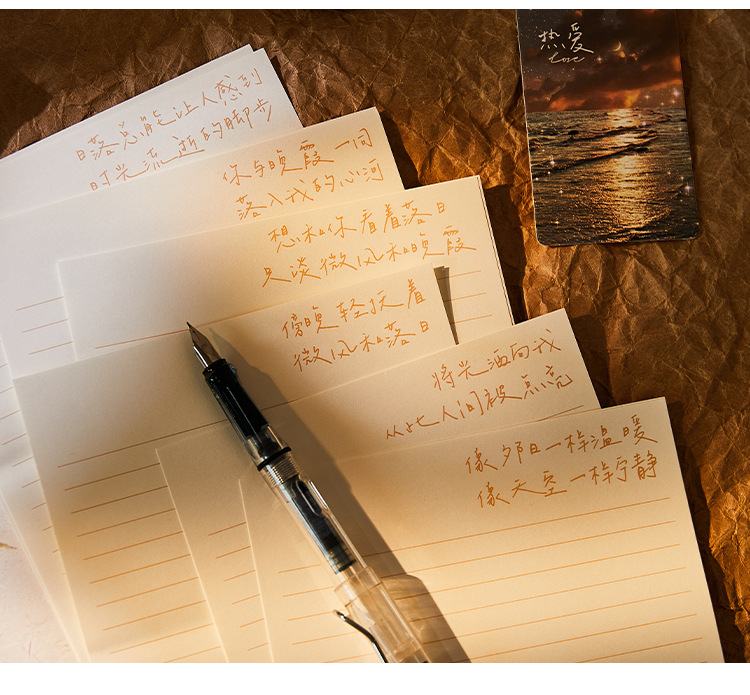 热爱
Love
日落总能让人感到
时光流逝的脚步
你与晚霞一同
落入我的心河
想和你看着落日
只谈微风和晚霞
傍晚轻抚着
微风和落日
将光洒向我
从此人间被点亮
像夕日一样温暖
像天空一样宁静